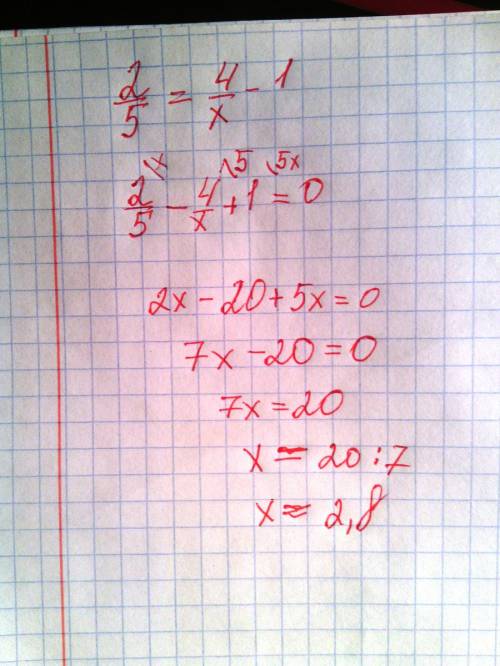 2/5 = 4/x - 1
2/5 \x - 4/x \5 + 1 \5x = 0
2x - 20 + 5x = 0
7x - 20 = 0
7x = 20
x = 20 : 7
x ≈ 2,8